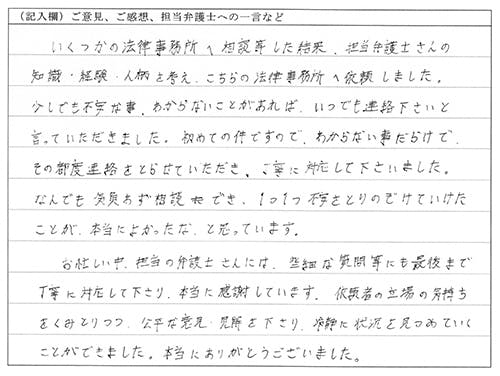 （記入欄）ご意見、ご感想、担当弁護士への一言など
いくつかの法律事務所へ相談等した結果、担当弁護士さんの
知識・経験・人柄を考え、こちらの法律事務所へ依頼しました。
少しでも不安な事、わからないことがあれば、いつでも連絡下さいと
言っていただきました。初めての件ですので、わからない事だらけで、
その都度連絡をとらせていただき、ご丁寧に対応して下さいました。
なんでも気兼ねず相談でき、1つ1つ不安をとりのぞけていけた
ことが、本当によかったな、と思っています。
お忙しい中、担当の弁護士さんには、些細な質問等にも最後まで
丁寧に対応して下さり、本当に感謝しています。依頼者の立場の気持ち
をくみとりつつ、公平な意見・見解を下さり、冷静に状況を見つめていく
ことができました。本当にありがとうございました。